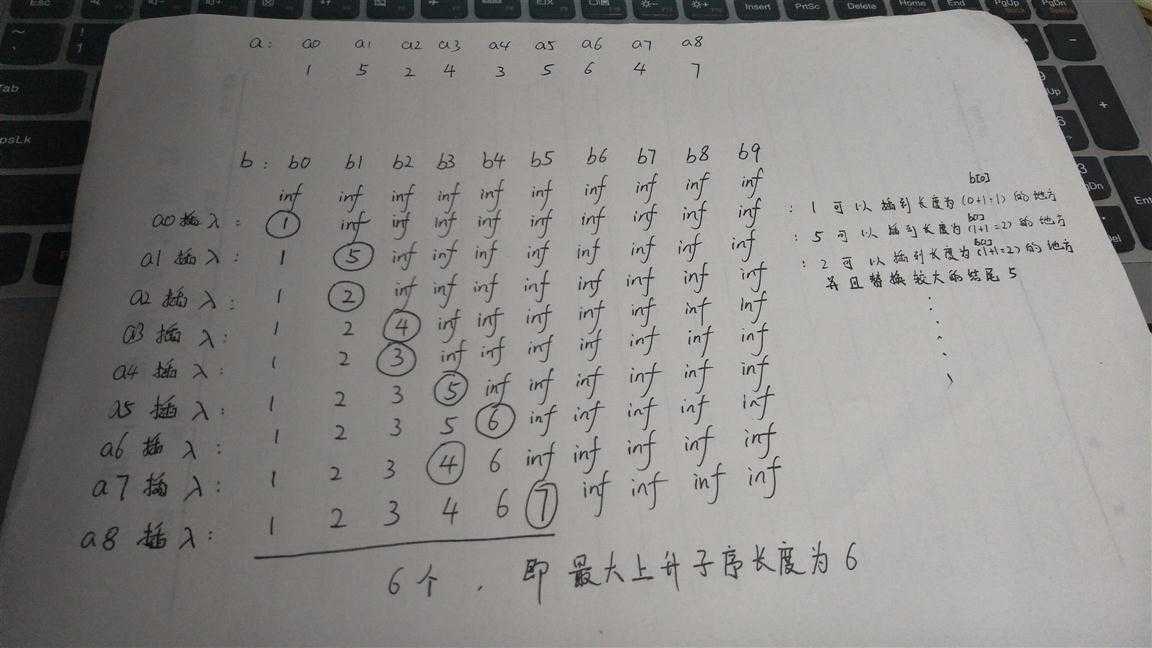 Esc
Insert PrtSc Delete Home End PgUp PgDn
Tab
psLk
a: a0 a1 a2 a3 a4 a5 a6 a7 a8
1 5 2 4 3 5 6 4 7
b: b0 b1 b2 b3 b4 b5 b6 b7 b8 b9
inf inf inf inf inf inf inf inf inf inf
a0插入: 1 inf inf inf inf inf inf inf inf inf : 1 可以插到长度为(0+1=1)的地方 b[0]
a1插入: 1 5 inf inf inf inf inf inf inf inf : 5 可以插到长度为(1+1=2)的地方
a2插入: 1 2 inf inf inf inf inf inf inf inf : 2 可以插到长度为(1+1=2)的地方
并且替换较大的结尾5
a3插入: 1 2 4 inf inf inf inf inf inf inf
a4插入: 1 2 3 inf inf inf inf inf inf inf
a5插入: 1 2 3 5 inf inf inf inf inf inf
a6插入: 1 2 3 5 6 inf inf inf inf inf
a7插入: 1 2 3 4 6 inf inf inf inf inf
a8插入: 1 2 3 4 6 7 inf inf inf inf
6个, 即最大上升子序长度为6